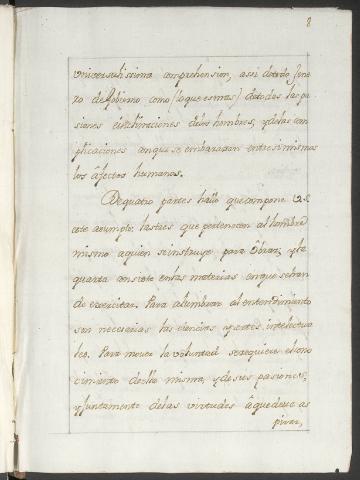 8
universalissima comprehension, assi de todo gene
ro de Gobierno como (lo que es mas) de todas las pa
siones e inclinaciones de los hombres, y de las com
plicaciones en que se embarazan entre si mismos
los afectos humanos.
De quatro partes hallo que compone V.E.
este asumpto: las tres que pertenecen al hombre
mismo a quien se instruye, para Obrar; y la
quarta consiste en las materias en que se han
de exercitar. Para alumbrar al entendimiento
son necesarias las ciencias y artes intelectua
les. Para mover la voluntad se requiere el cono
cimiento de ella misma, y de sus pasiones;
y juntamente de las virtudes â que deve as
pirar,